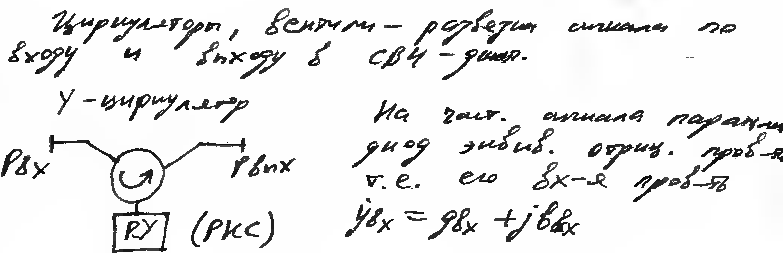 Циркуляторы, вентили – развязка сигнала по
входу и выходу в СВЧ – диап.
Y – циркулятор
Pвх
Pвых
РУ
(РКС)
На част. сигнала парам.
диод эквив. отриц. пров-ти
т.е. его вх-я пров-ть
ẏвх = gвх + jbвх